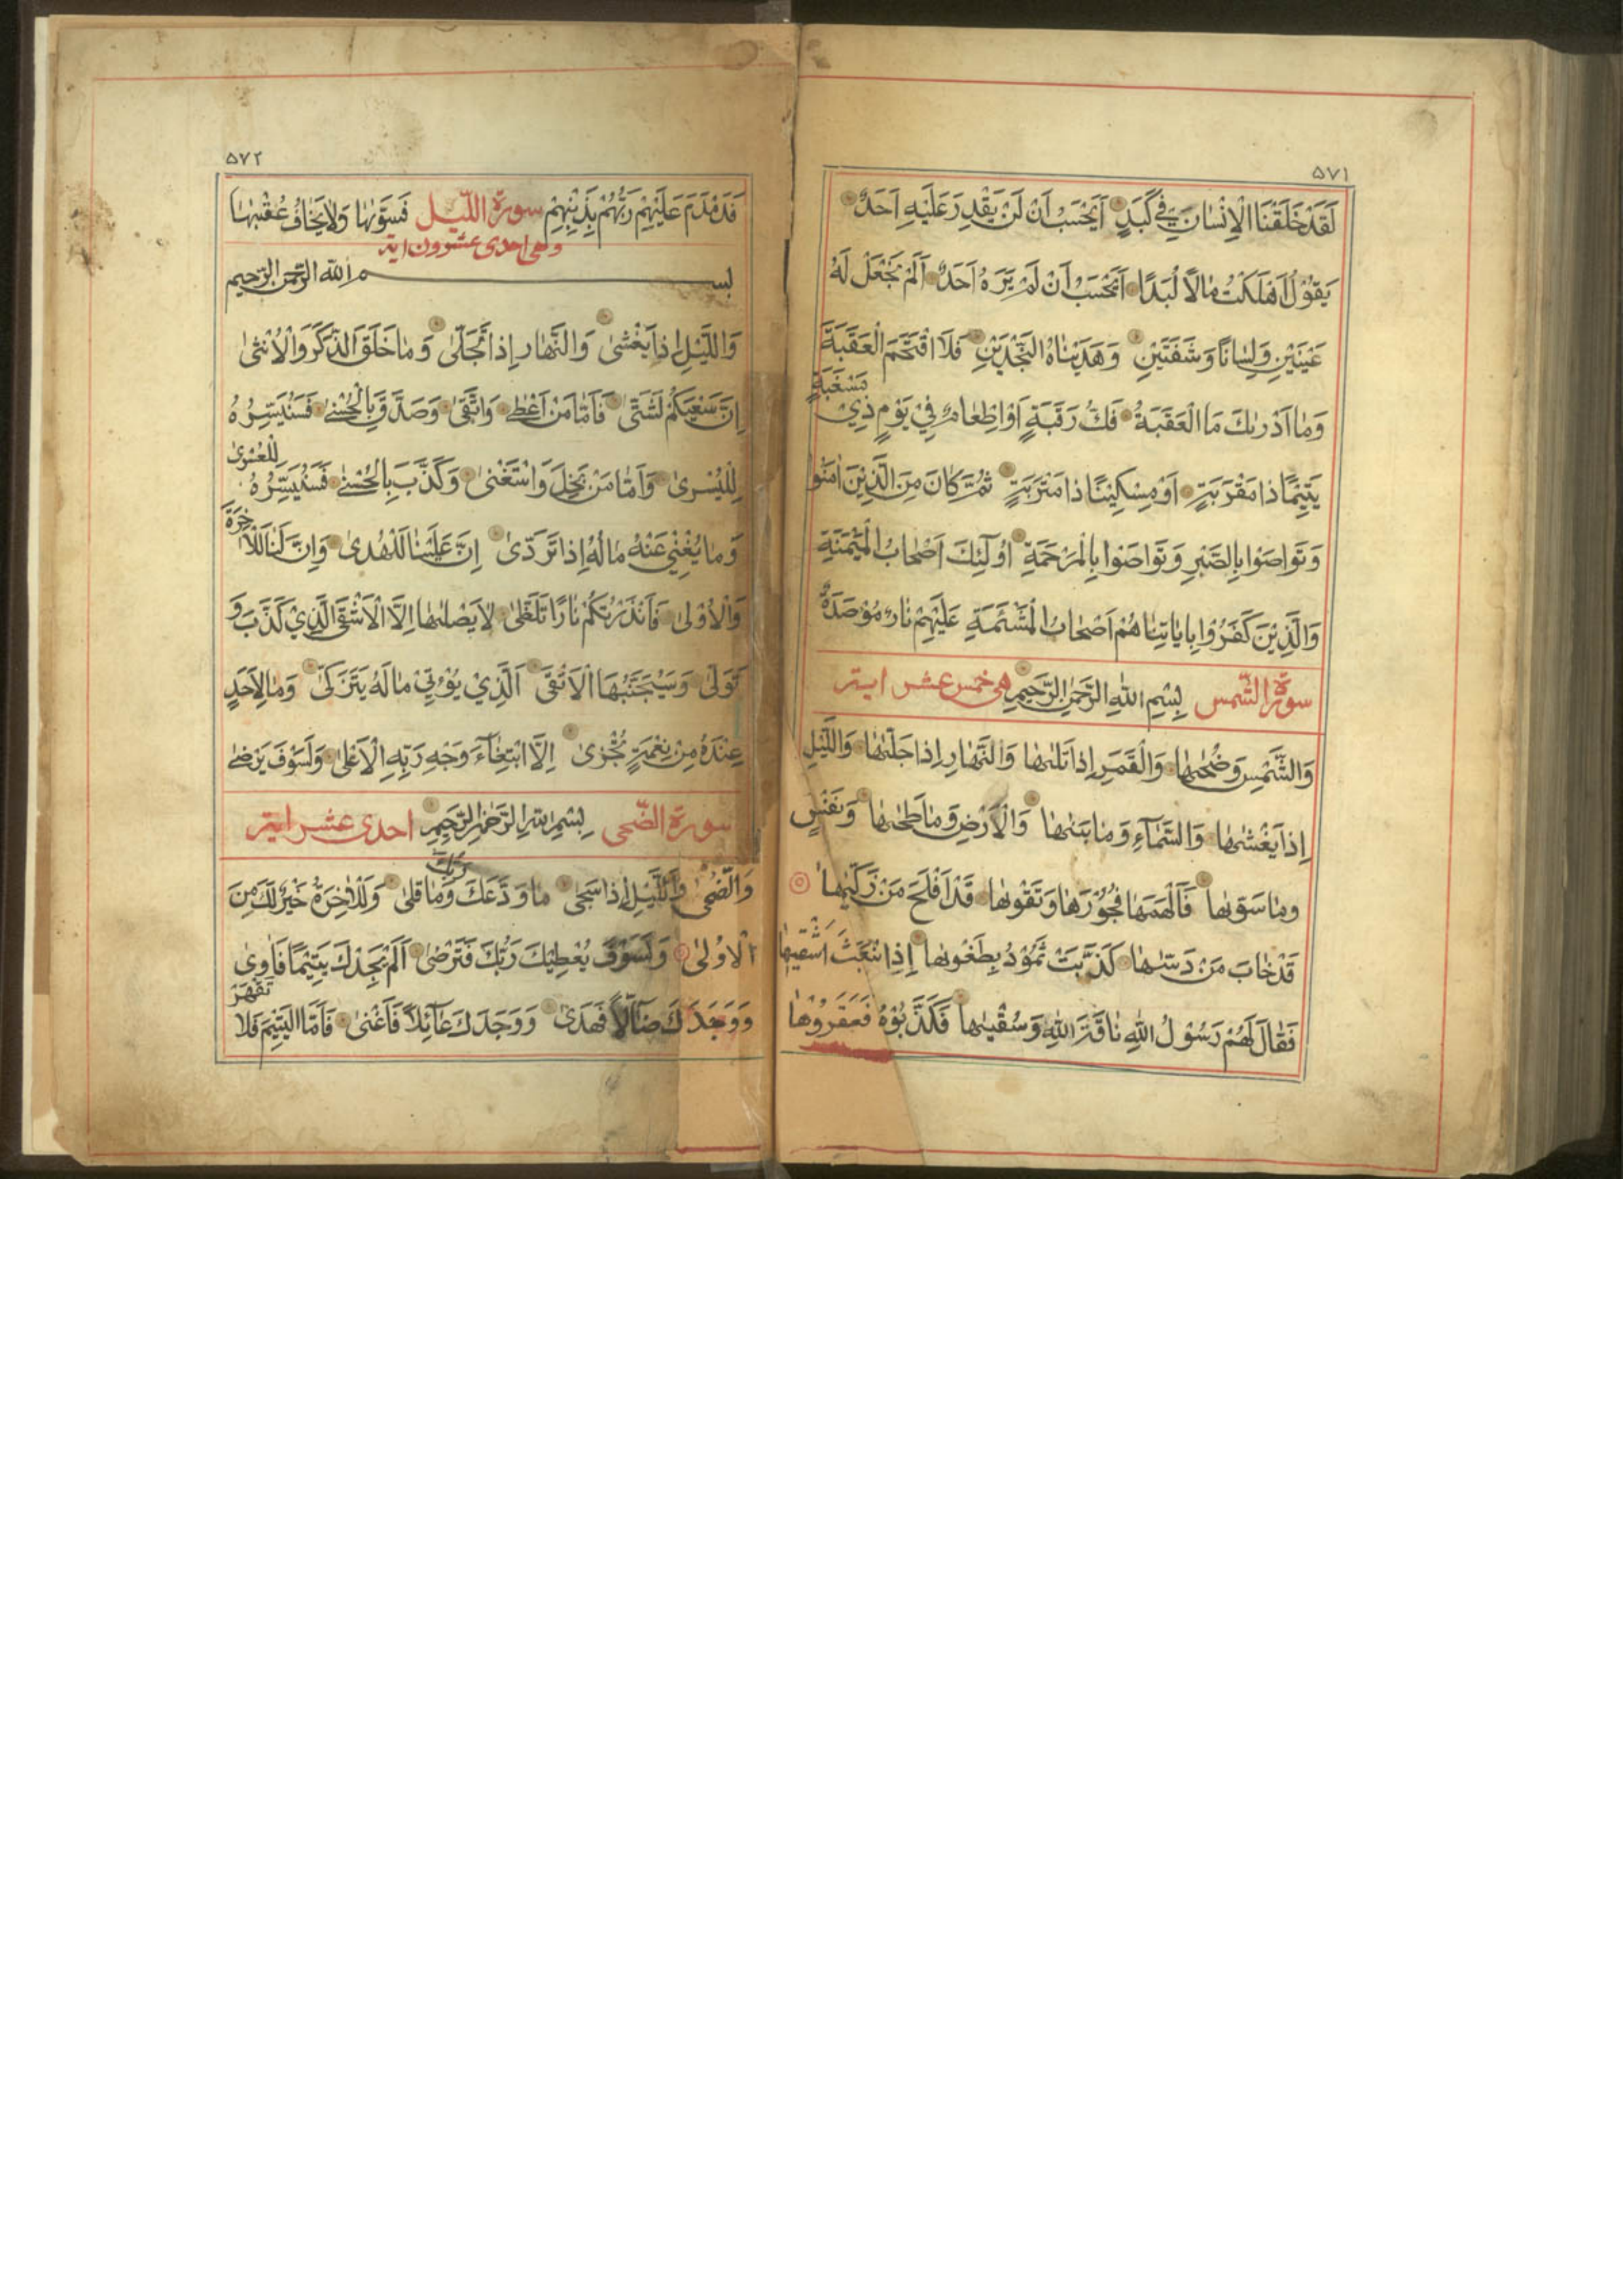 ۵۷۱
لَقَدْ خَلَقْنَا الْاِنْسانَ فِي كَبَدٍ اَيَحْسَبُ اَنْ لَنْ يَقْدِرَ عَلَيْهِ اَحَدٌ
يَقُوْلُ اَهْلَكْتُ مالاً لُبَدًا اَيَحْسَبُ اَنْ لَمْ يَرَهُ اَحَدٌ اَلَمْ نَجْعَلْ لَهُ
عَيْنَيْنِ وَلِسانًا وَشَفَتَيْنِ وَهَدَيْناهُ النَّجْدَيْنِ فَلَا اقْتَحَمَ الْعَقَبَةَ
وَما اَدْرٰىكَ مَا الْعَقَبَةُ فَكُّ رَقَبَةٍ اَوْ اِطْعامٌ فِيْ يَوْمٍ ذِيْ مَسْغَبَةٍ
يَتِيْمًا ذا مَقْرَبَةٍ اَوْ مِسْكِيْنًا ذا مَتْرَبَةٍ ثُمَّ كانَ مِنَ الَّذِيْنَ اٰمَنُوا
وَتَواصَوْا بِالصَّبْرِ وَتَواصَوْا بِالْمَرْحَمَةِ اُولٰٓئِكَ اَصْحابُ الْمَيْمَنَةِ
وَالَّذِيْنَ كَفَرُوْا بِاٰياتِنا هُمْ اَصْحابُ الْمَشْئَمَةِ عَلَيْهِمْ نارٌ مُوْصَدَةٌ
سورة الشّمس بِسْمِ اللهِ الرَّحْمٰنِ الرَّحِيْمِ هى خمس عشر اية
وَالشَّمْسِ وَضُحٰىها وَالْقَمَرِ اِذا تَلٰىها وَالنَّهارِ اِذا جَلّٰىها وَاللَّيْلِ
اِذا يَغْشٰىها وَالسَّمآءِ وَما بَنٰىها وَالْاَرْضِ وَما طَحٰىها وَنَفْسٍ
وما سَوّٰىها فَاَلْهَمَها فُجُوْرَها وَتَقْوٰىها قَدْ اَفْلَحَ مَنْ زَكّٰيها
قَدْ خابَ مَنْ دَسّٰىها كَذَّبَتْ ثَمُوْدُ بِطَغْوٰىها اِذِ انْبَعَثَ اَشْقٰيها
فَقالَ لَهُمْ رَسُوْلُ اللهِ ناقَةَ اللهِ وَسُقْيٰها فَكَذَّبُوْهُ فَعَقَرُوْها
۵۷۲
فَدَمْدَمَ عَلَيْهِمْ رَبُّهُمْ بِذَنْبِهِمْ سورة اللّيل فَسَوّٰىها وَلا يَخافُ عُقْبٰىها
وهى احدى عشرون اية
بسم الله الرّحمن الرّحيم
وَاللَّيْلِ اِذا يَغْشىٰ وَالنَّهارِ اِذا تَجَلّىٰ وَما خَلَقَ الذَّكَرَ وَالْاُنْثىٰ
اِنَّ سَعْيَكُمْ لَشَتّىٰ فَاَمّا مَنْ اَعْطىٰ وَاتَّقىٰ وَصَدَّقَ بِالْحُسْنىٰ فَسَنُيَسِّرُهُ
لِلْيُسْرىٰ وَاَمّا مَنْ بَخِلَ وَاسْتَغْنىٰ وَكَذَّبَ بِالْحُسْنىٰ فَسَنُيَسِّرُهُ لِلْعُسْرىٰ
وَما يُغْنِيْ عَنْهُ مالُهُ اِذا تَرَدّىٰ اِنَّ عَلَيْنا لَلْهُدىٰ وَاِنَّ لَنا لَلْاٰخِرَةَ
وَالْاُوْلىٰ فَاَنْذَرْتُكُمْ نارًا تَلَظّىٰ لا يَصْلٰىها اِلَّا الْاَشْقَى الَّذِيْ كَذَّبَ وَ
تَوَلّىٰ وَسَيُجَنَّبُهَا الْاَتْقَى الَّذِيْ يُؤْتِيْ مالَهُ يَتَزَكّىٰ وَما لِاَحَدٍ
عِنْدَهُ مِنْ نِعْمَةٍ تُجْزىٰ اِلَّا ابْتِغآءَ وَجْهِ رَبِّهِ الْاَعْلىٰ وَلَسَوْفَ يَرْضىٰ
سورة الضّحى بِسْمِ اللهِ الرَّحْمٰنِ الرَّحِيْمِ احدى عشر اية
وَالضُّحىٰ وَاللَّيْلِ اِذا سَجىٰ ما وَدَّعَكَ رَبُّكَ وَما قَلىٰ وَلَلْاٰخِرَةُ خَيْرٌ لَكَ مِنَ
الْاُوْلىٰ وَلَسَوْفَ يُعْطِيْكَ رَبُّكَ فَتَرْضىٰ اَلَمْ يَجِدْكَ يَتِيْمًا فَاٰوىٰ
وَوَجَدَكَ ضآلاًّ فَهَدىٰ وَوَجَدَكَ عآئِلاً فَاَغْنىٰ فَاَمَّا الْيَتِيْمَ فَلا تَقْهَرْ